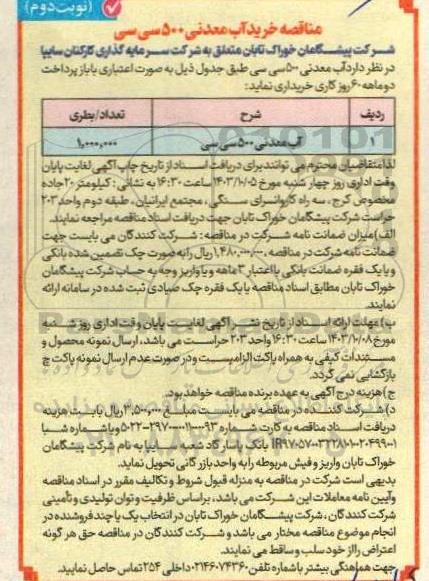 (نوبت دوم)
مناقصه خرید آب معدنی ۵۰۰ سی سی
شرکت پیشگامان خوراک تابان متعلق به شرکت سرمایه گذاری کارکنان سایپا
در نظر دارد آب معدنی ۵۰۰ سی سی طبق جدول ذیل به صورت اعتباری با باز پرداخت
دو ماهه ۶۰ روز کاری خریداری نماید:
ردیف شرح تعداد/بطری
۱ آب معدنی ۵۰۰ سی سی ۱,۰۰۰,۰۰۰
لذا متقاضیان محترم می توانند برای دریافت اسناد از تاریخ چاپ آگهی لغایت پایان
وقت اداری روز چهار شنبه مورخ ۱۴۰۳/۱۰/۰۵ ساعت ۱۶:۳۰ به نشانی: کیلومتر ۲۰ جاده
مخصوص کرج، سه راه کاروانسرای سنگی، مجتمع ایرانیان، طبقه دوم واحد ۲۰۳
حراست شرکت پیشگامان خوراک تابان جهت دریافت اسناد مناقصه مراجعه نمایند.
الف) میزان ضمانت نامه شرکت در مناقصه: شرکت کنندگان می بایست جهت
ضمانت نامه شرکت در مناقصه، ۱,۴۸۰,۰۰۰,۰۰۰ ریال را به صورت چک تضمین شده بانکی
و یا یک فقره ضمانت بانکی با اعتبار ۳ ماهه و یا واریز وجه به حساب شرکت پیشگامان
خوراک تابان مطابق اسناد مناقصه یا یک فقره چک صیادی ثبت شده در سامانه ارائه
نمایند.
ب) مهلت ارائه اسناد از تاریخ نشر آگهی لغایت پایان وقت اداری روز شنبه
مورخ ۱۴۰۳/۱۰/۰۸ ساعت ۱۶:۳۰ واحد ۲۰۳ حراست می باشد، ارسال نمونه محصول و
مستندات کیفی به همراه پاکت الزامیست و در صورت عدم ارسال نمونه پاکت ج
بازگشایی نمی گردد.
ج) هزینه درج آگهی به عهده برنده مناقصه خواهد بود.
د) شرکت کننده در مناقصه می بایست مبلغ ۳,۵۰۰,۰۰۰ ریال بابت هزینه
دریافت اسناد مناقصه به کارت شماره و یا شماره شبا
بانک پاسارگاد شعبه سایپا به نام شرکت پیشگامان
خوراک تابان واریز و فیش مربوطه را به واحد بازرگانی تحویل نماید.
بدیهی است شرکت در مناقصه به منزله قبول شروط و تکالیف مقرر در اسناد مناقصه
و آیین نامه معاملات این شرکت می باشد، براساس ظرفیت و توان تولیدی و تأمینی
شرکت کنندگان، شرکت پیشگامان خوراک تابان در انتخاب یک یا چند فروشنده در
انجام موضوع مناقصه مختار می باشد و شرکت کنندگان در مناقصه حق هر گونه
اعتراض را از خود سلب و ساقط می نمایند.
جهت هماهنگی بیشتر با شماره تلفن ۰۲۱۴۶۰۷۴۳۶۰ داخلی ۲۵۴ تماس حاصل نمایید.